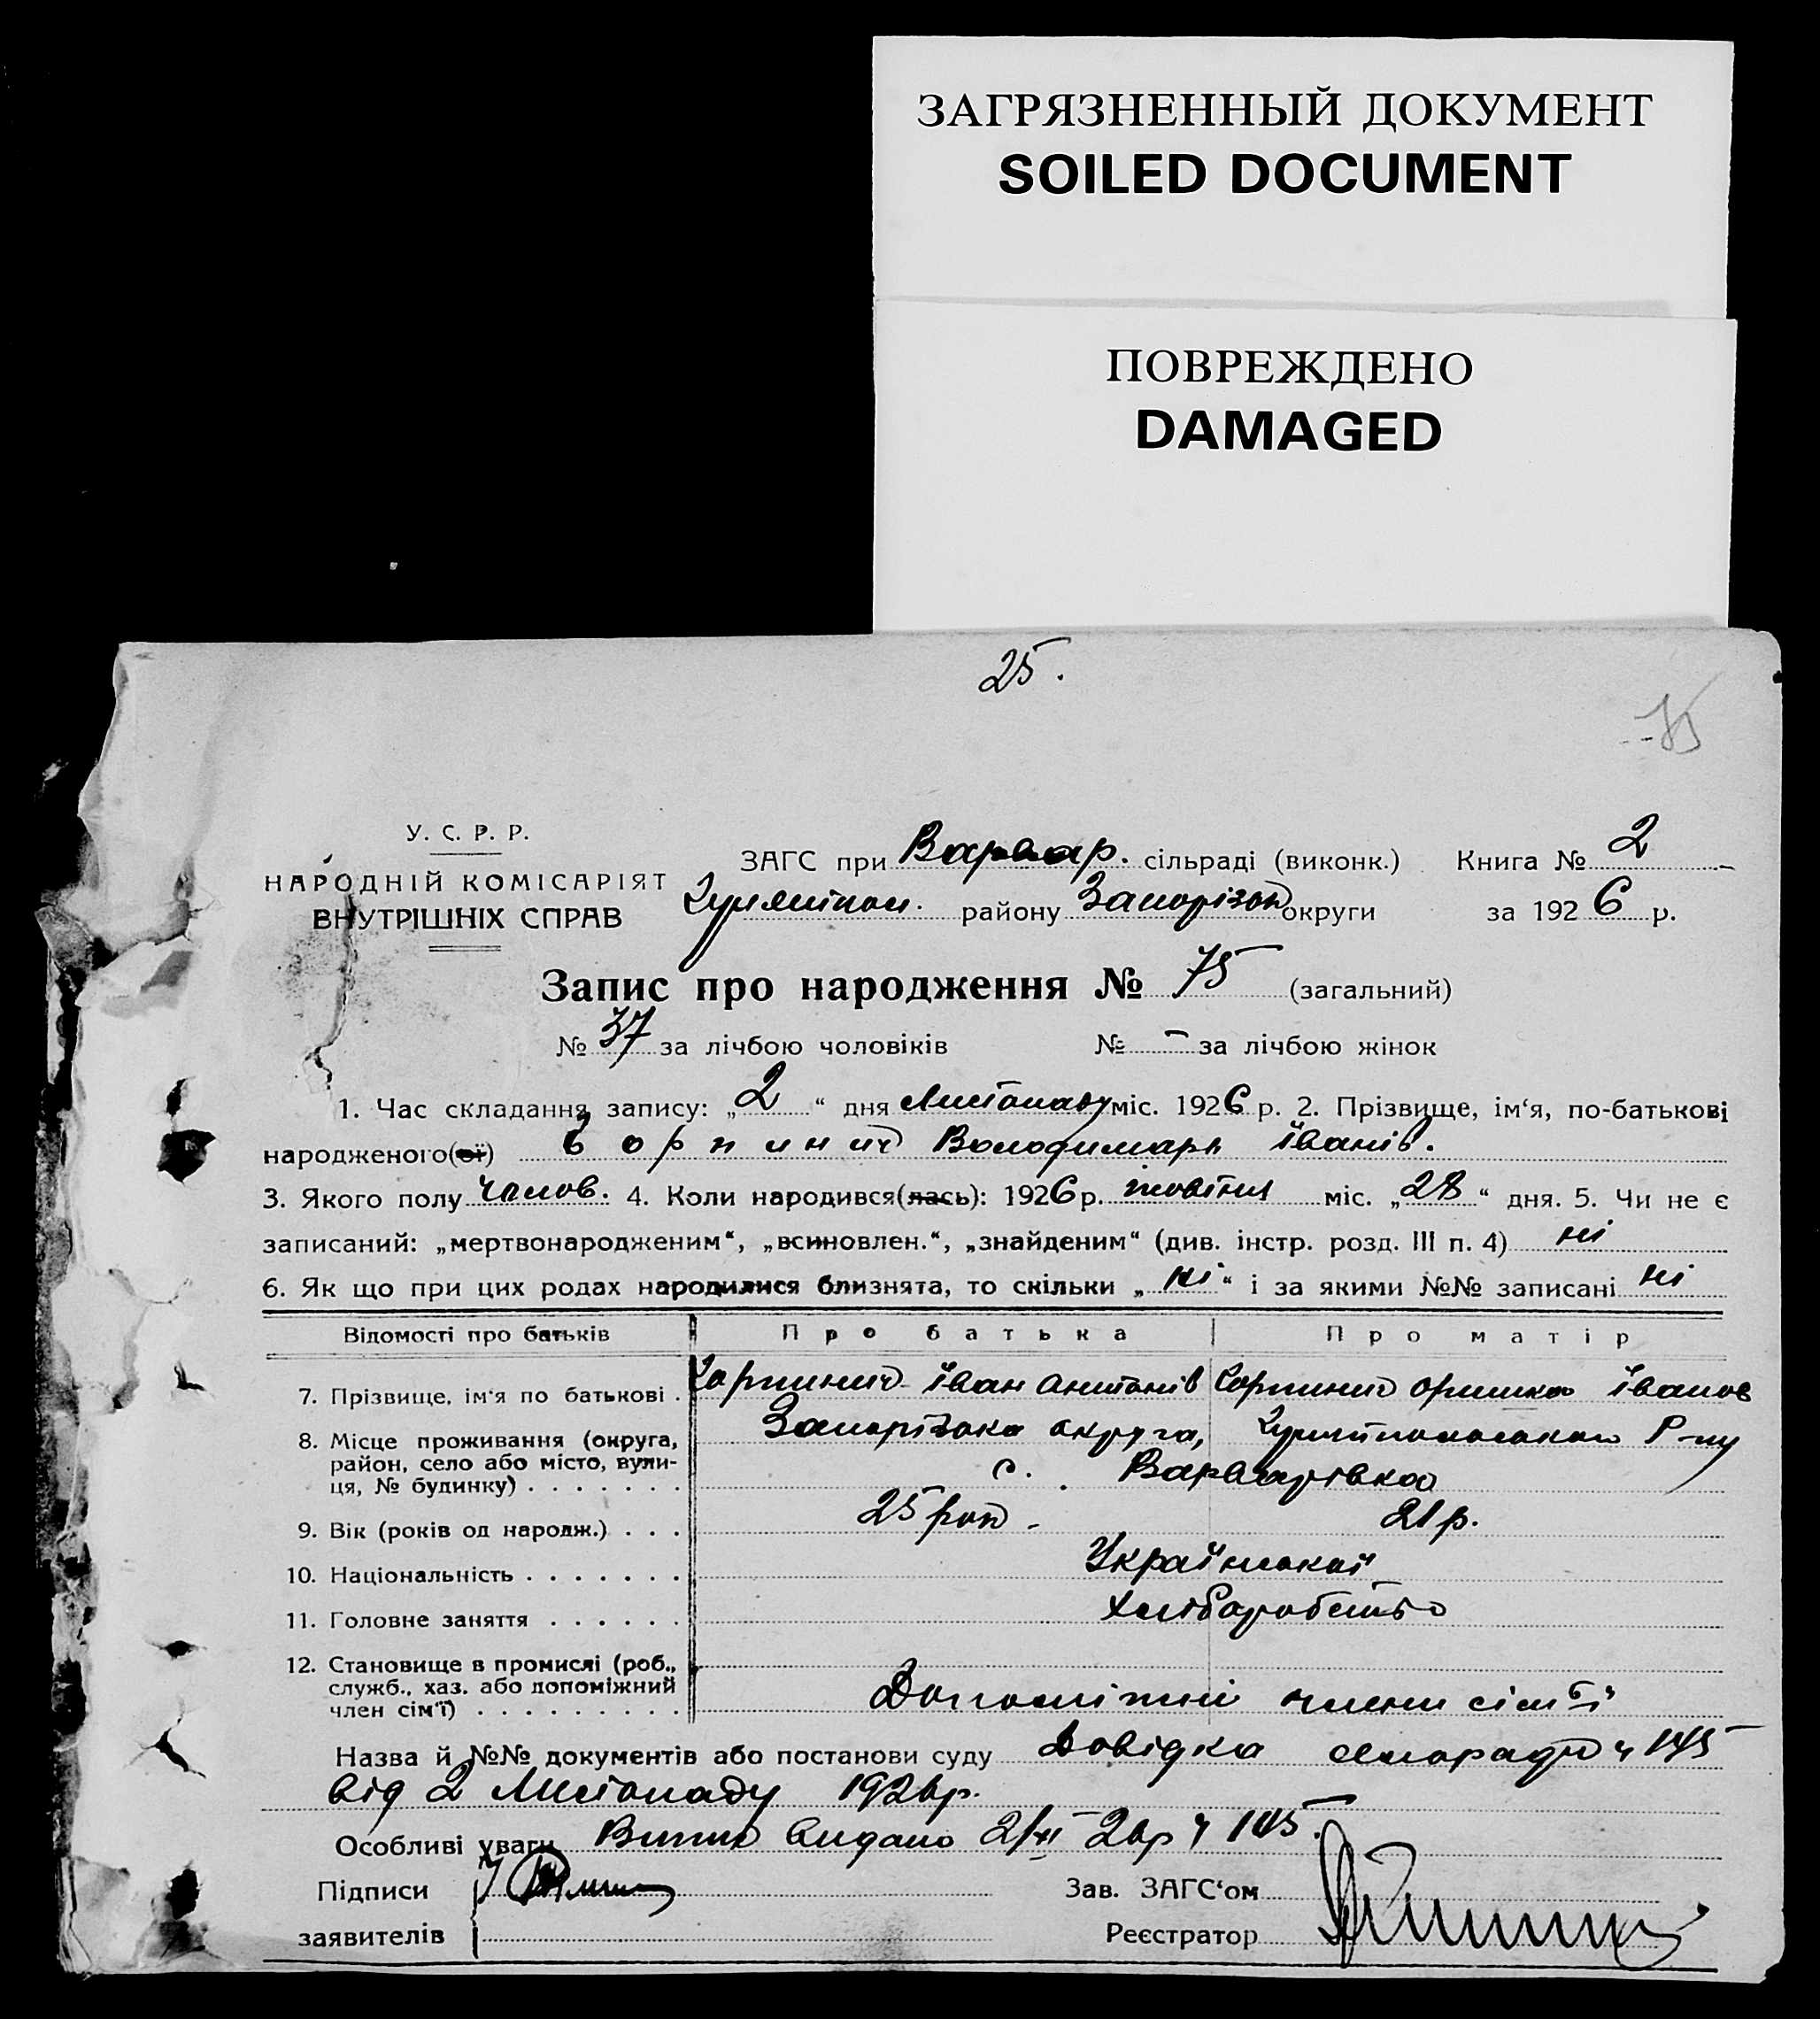 ЗАГРЯЗНЕННЫЙ ДОКУМЕНТ
SOILED DOCUMENT
ПОВРЕЖДЕНО
DAMAGED
25.
75
У. С. Р. Р.
НАРОДНІЙ КОМІСАРІЯТ
ВНУТРІШНІХ СПРАВ
ЗАГС при Варвар. сільраді (виконк.) Книга № 2
району Запорізьк округи за 1926 р.
Запис про народження № 75 (загальний)
№ 37 за лічбою чоловіків № - за лічбою жінок
1. Час складання запису: „2“ дня Листопаду міс. 1926 р. 2. Прізвище, ім‘я, по-батькові
народженого(ої) Володимирь Іванів.
3. Якого полу чолов. 4. Коли народився(лась): 1926 р. жовтня міс. „28“ дня. 5. Чи не є
записаний: „мертвонародженим“, „всиновлен.“, „знайденим“ (див. інстр. розд. III п. 4) ні
6. Як що при цих родах народилися близнята, то скільки „ні“ і за якими №№ записані ні
Відомості про батьків Про батька Про матір
7. Прізвище, ім‘я по батькові . Іван Антонів Оришка Іванов
8. Місце проживання (округа, район, село або місто, вулиця, № будинку) . . . . . . . Запорізька округа, Р-ну
с. Варварівка
9. Вік (років од народж.) . . . 25 рок 21 р.
10. Національність . . . . . . . Української
11. Головне заняття . . . . . . Хліборобство
12. Становище в промислі (роб., служб., хаз. або допоміжний член сім‘ї) . . . . . . . . . Допоміжні члени сімьї
Назва й №№ документів або постанови суду Довідка сільради ч 145
від 2 Листопаду 1926 р.
Особливі уваги Витяг видано 2/XI 26 р ч 145.
Підписи Зав. ЗАГС‘ом
заявителів Реєстратор